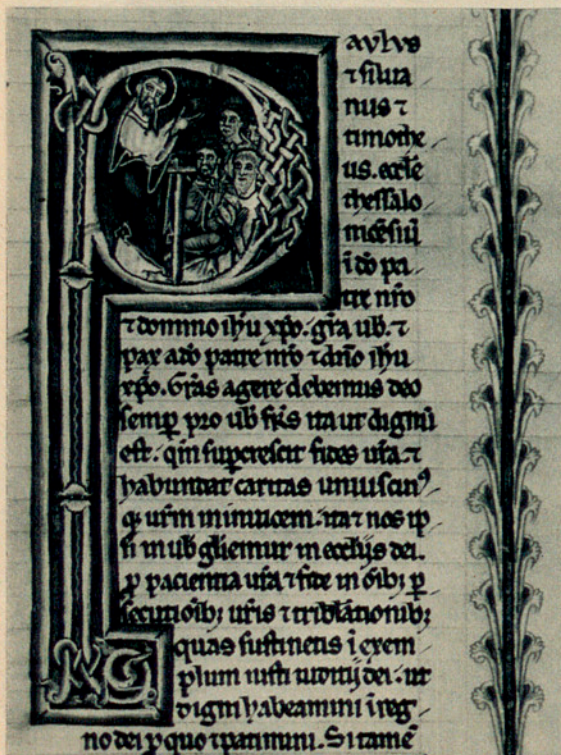 aulus
⁊ silua
nus ⁊
timothe
us. eccl̄e
thessalo
nicēsiū
ī dō pa
tre nr̄o
⁊ domino ihū xp̄o. gr̄a ub̄. ⁊
pax a dō patre nr̄o ⁊ dn̄o ihū
xp̄o. Gr̄as agere debemus deo
semꝑ pro ub̄ fr̄s ita ut dignū
est. qm̄ suꝑcrescit fides ur̄a. ⁊
habundat caritas uniuscuiꝰ
qꝫ ur̄m inuicem. ita ⁊ nos ip
si in ub̄ gl̄iemur in eccl̄ijs dei.
ꝓ pacientia ur̄a ⁊ fide in ōibꝫ ꝑ
secutiōibꝫ ur̄is ⁊ tribl̄ationibꝫ
quas sustinetis ī exem
plum iusti iuditij dei. ut
digni habeamini ī reg
no dei ꝓ quo ⁊ patimini. Si tamē